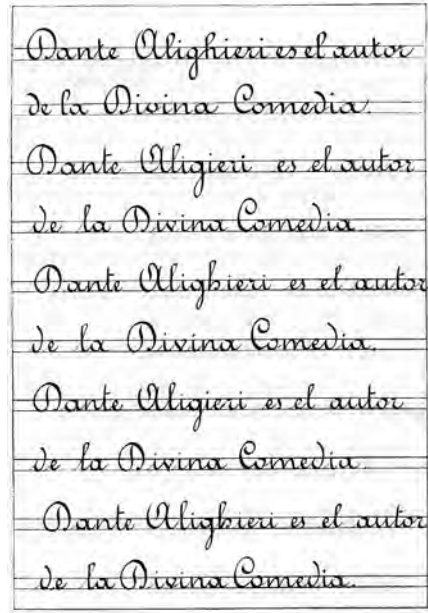 Dante Alighieri es el autor
de la Divina Comedia.
Dante Aligieri es el autor
de la Divina Comedia.
Dante Alighieri es el autor
de la Divina Comedia.
Dante Aligieri es el autor
de la Divina Comedia.
Dante Alighieri es el autor
de la Divina Comedia.